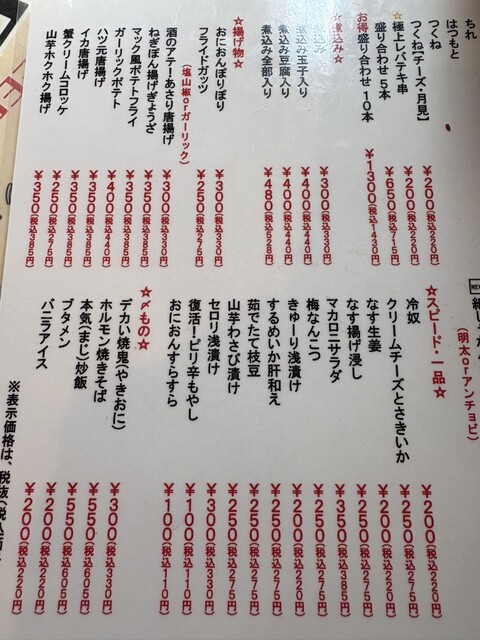 ちれ
はつもと
つくね
つくね[チーズ・月見] ¥200(税込220円)
☆極上レバテキ串 ¥200(税込220円)
盛り合わせ 5本 ¥650(税込715円)
お得盛り合わせ 10本 ¥1300(税込1430円)
煮込み☆
込み ¥300(税込330円)
煮込み玉子入り ¥400(税込440円)
煮込み豆腐入り ¥400(税込440円)
煮込み全部入り ¥480(税込528円)
☆揚げ物☆
おにおんぽりぽり ¥300(税込330円)
フライドガッツ ¥250(税込275円)
(塩山椒orガーリック)
酒のアテ!あさり唐揚げ ¥300(税込330円)
ねぎぽん揚げぎょうざ ¥350(税込385円)
マック風ポテトフライ ¥350(税込385円)
ガーリックポテト ¥400(税込440円)
ハツ元唐揚げ ¥350(税込385円)
イカ唐揚げ ¥350(税込385円)
蟹クリームコロッケ ¥250(税込275円)
山芋ホクホク揚げ ¥350(税込385円)
(明太orアンチョビ)
☆スピード・一品☆
冷奴 ¥200(税込220円)
クリームチーズとさきいか ¥250(税込275円)
なす生姜 ¥200(税込220円)
なす揚げ浸し ¥250(税込275円)
マカロニサラダ ¥350(税込385円)
梅なんこつ ¥250(税込275円)
きゅーり浅漬け ¥200(税込220円)
するめいか肝和え ¥250(税込275円)
茹でたて枝豆 ¥250(税込275円)
山芋わさび漬け ¥250(税込275円)
セロリ浅漬け ¥300(税込330円)
復活!ピリ辛もやし ¥100(税込110円)
おにおんすらすら ¥100(税込110円)
☆〆もの☆
デカい焼鬼(やきおに) ¥300(税込330円)
ホルモン焼きそば ¥550(税込605円)
本気(まじ)炒飯 ¥550(税込605円)
ブタメン ¥200(税込220円)
バニラアイス ¥200(税込220円)
※表示価格は、税抜(税込